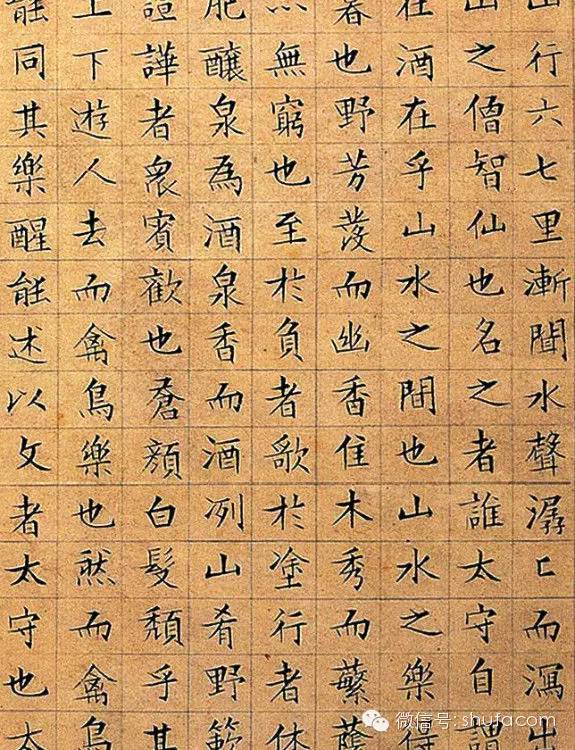 山行六七里漸聞水聲潺〻而瀉出
山之僧智仙也名之者誰太守自謂
在酒在乎山水之間也山水之樂得
暮也野芳發而幽香佳木秀而蘩蔭
亦無窮也至於負者歌於塗行者休
肥釀泉為酒泉香而酒冽山肴野蔌
諠譁者衆賓歡也蒼顏白髮頹乎其
上下遊人去而禽鳥樂也然而禽鳥
能同其樂醒能述以文者太守也太
微信号: shufacom